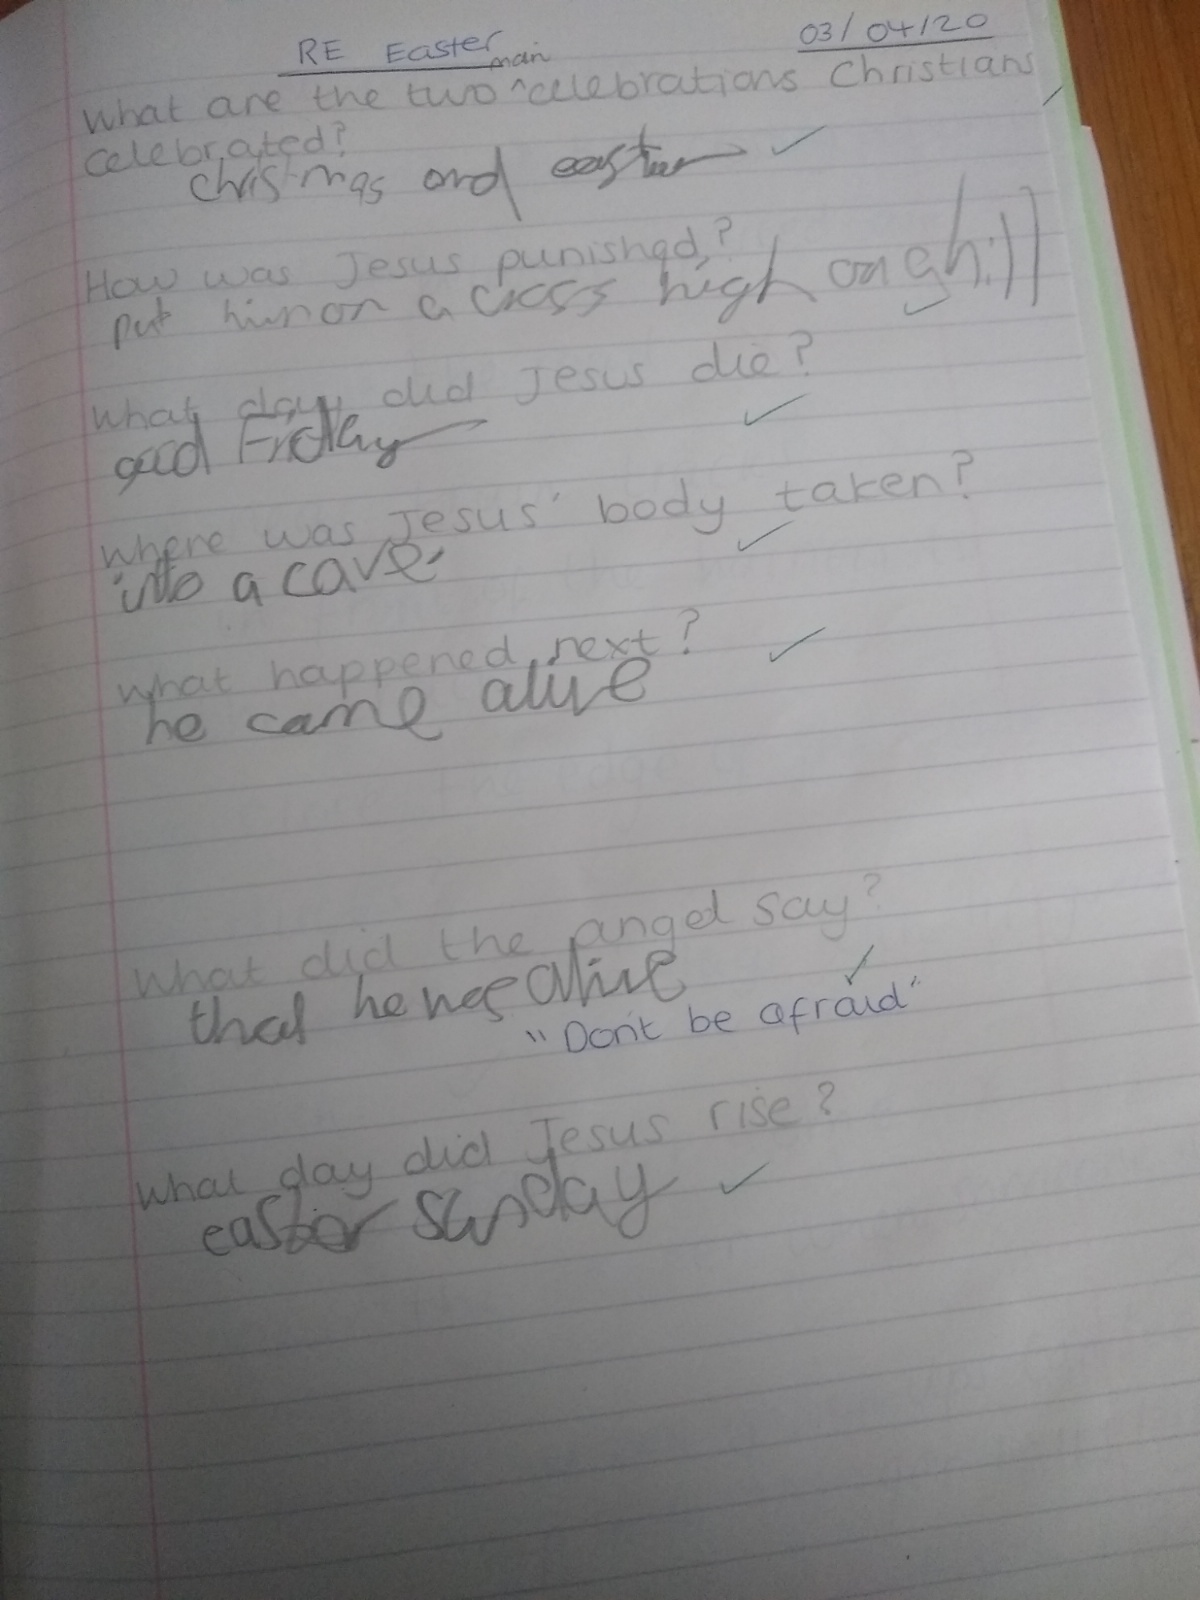 RE Easter 03/04/20
What are the two ^main celebrations Christians
celebrated?
christmas and easter
How was Jesus punished?
put him on a cross high on a hill
What day did Jesus die?
good Friday
Where was Jesus' body taken?
into a cave.
What happened next?
he came alive
What did the angel say?
that he was alive
"Don't be afraid"
What day did Jesus rise?
easter sunday